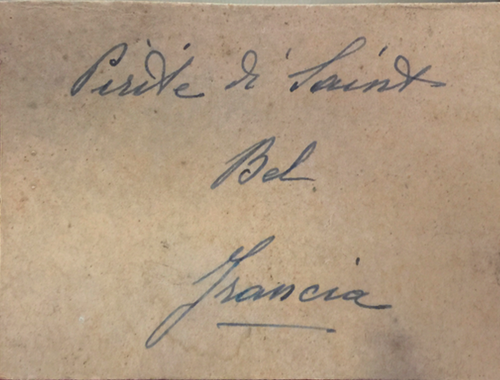 Pirite di Saint
Bel
Francia